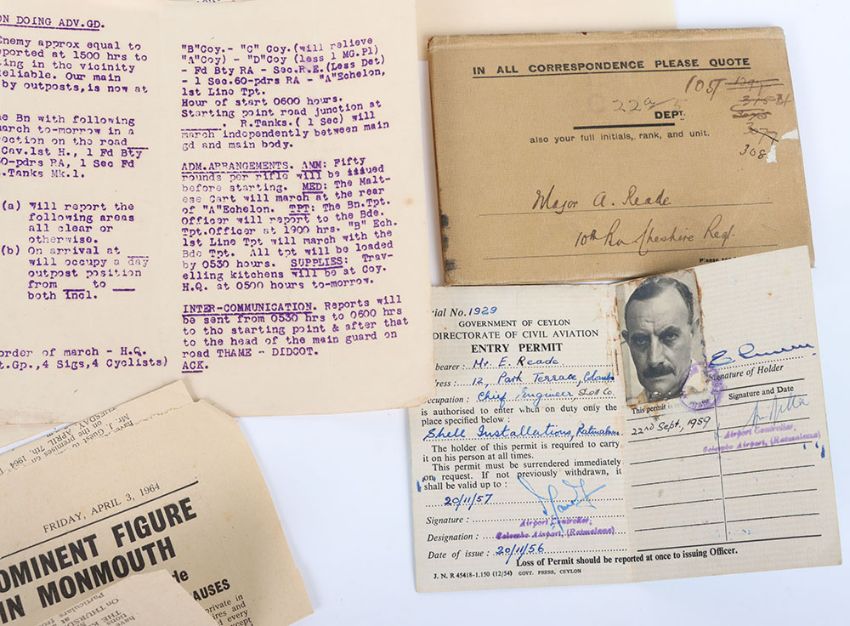 ON DOING ADV.GD.
Enemy approx equal to
ported at 1500 hrs to
ing in the vicinity
eliable. Our main
by outposts, is now at
he Bn with following
march to-morrow in a
ection on the road
Cav. 1st H., 1 Fd Bty
60-pdrs RA, 1 Sec Fd
.Tanks Mk.1.
(a) will report the
following areas
all clear or
otherwise.
(b) On arrival at
will occupy a day
outpost position
from __ to __
both incl.
order of march - H.Q.
t.Gp.,4 Sigs,4 Cyclists)
"B"Coy.- "C" Coy.(will relieve
"A"Coy) - "D"Coy (less 1 MG.Pl)
- Fd Bty RA - Sec.R.E.(Less Det)
- 1 Sec.60-pdrs RA - "A"Echelon,
1st Line Tpt.
Hour of start 0600 hours.
Starting point road junction at
____. R.Tanks.( 1 Sec) will
march independently between main
gd and main body.
ADM.ARRANGEMENTS. AMM: Fifty
rounds per rifle will be issued
before starting. MED: The Malt-
ese Cart will march at the rear
of "A"Echelon. TPT: The Bn.Tpt.
Officer will report to the Bde.
Tpt.Officer at 1900 hrs. "B" Ech.
1st Line Tpt will march with the
Bde Tpt. All tpt will be loaded
by 0530 hours. SUPPLIES: Trav-
elling kitchens will be at Coy.
H.Q. at 0500 hours to-morrow.
INTER-COMMUNICATION. Reports will
be sent from 0530 hrs to 0600 hrs
to the starting point & after that
to the head of the main guard on
road THAME - DIDCOT.
ACK.
IN ALL CORRESPONDENCE PLEASE QUOTE
DEPT.
also your full initials, rank, and unit.
Major A. Reade
10th Bn Cheshire Reg
308
rial No. 1929
GOVERNMENT OF CEYLON
DIRECTORATE OF CIVIL AVIATION
ENTRY PERMIT
bearer : Mr. E. Reade
ress : 12, Park Terrace, Colombo
ccupation : Chief Engineer Shell Co.
is authorised to enter when on duty only the
place specified below :
Shell Installations, Ratmalana
The holder of this permit is required to carry
it on his person at all times.
This permit must be surrendered immediately
on request. If not previously withdrawn, it
shall be valid up to :
20/11/57
Signature :
Airport Controller,
Designation : Colombo Airport, (Ratmalana)
Date of issue : 20/11/56
J. N. R 45418-1.150 (12/54) GOVT. PRESS, CEYLON
Signature of Holder
This permit
Signature and Date
22nd Sept, 1959
Airport Controller,
Colombo Airport, (Ratmalana)
Loss of Permit should be reported at once to issuing Officer.
FRIDAY, APRIL 3, 1964
OMINENT FIGURE
IN MONMOUTH
de
AUSES